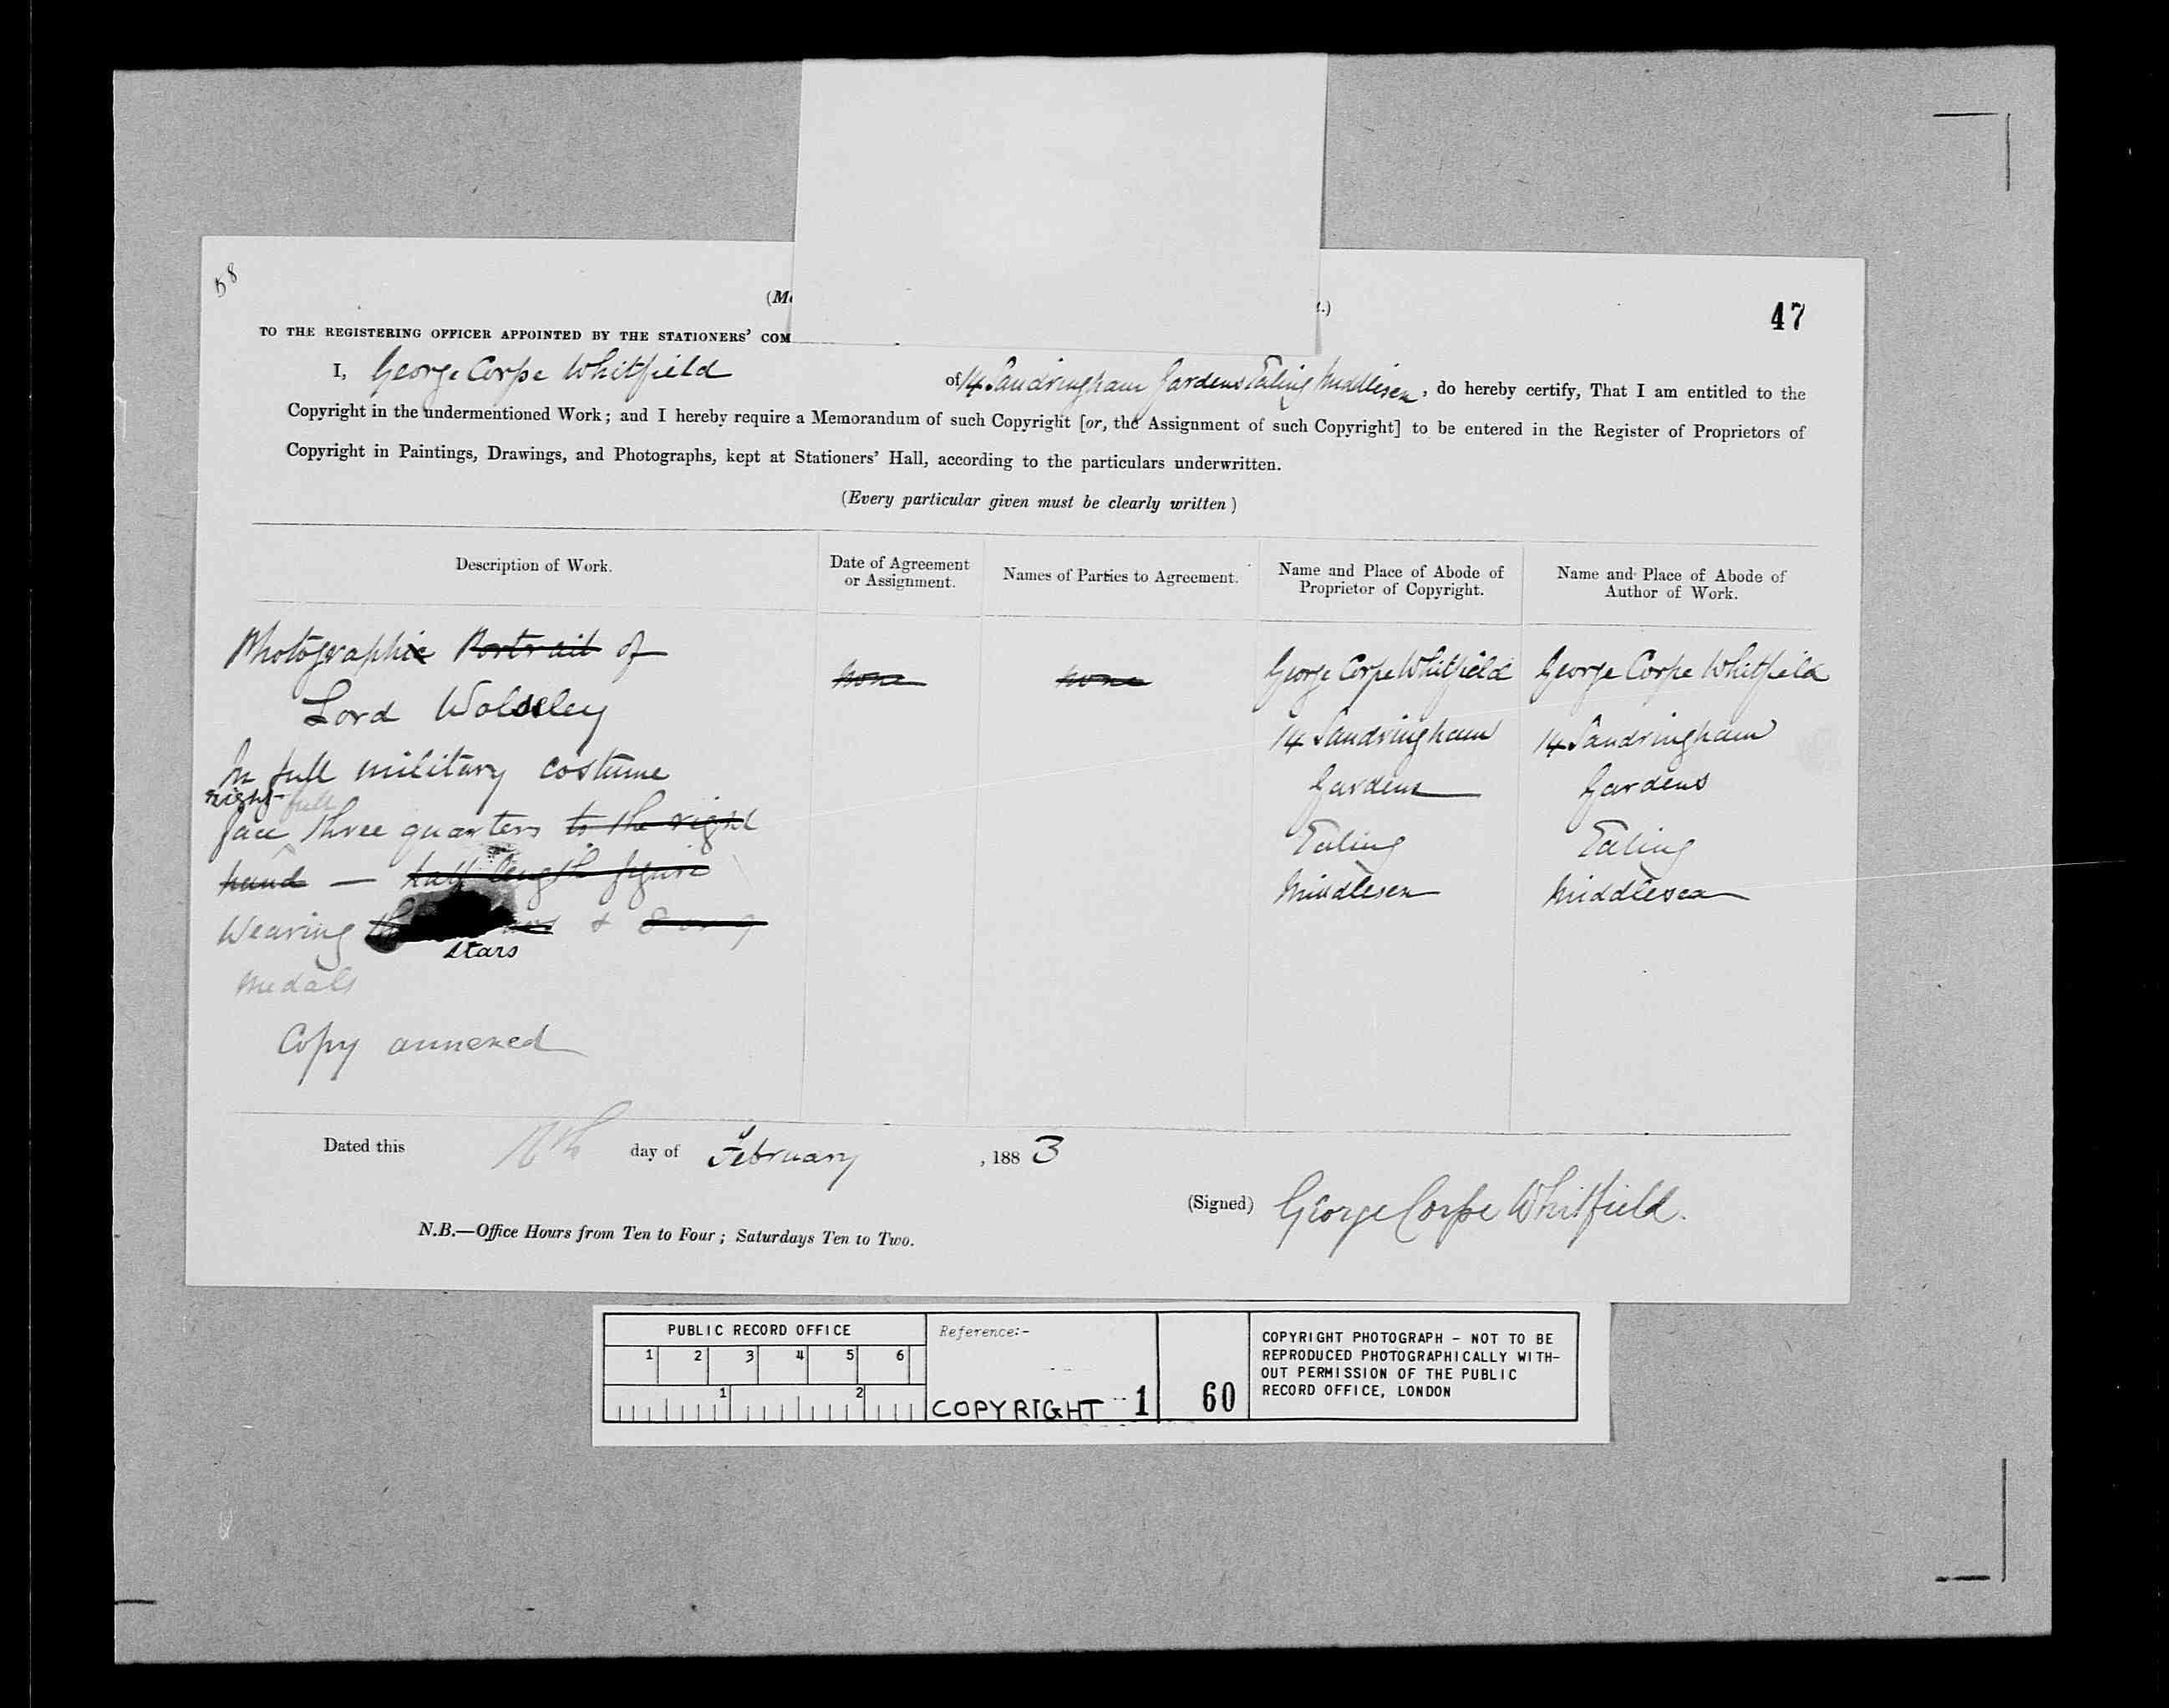 58
(Me
t.)
47
TO THE REGISTERING OFFICER APPOINTED BY THE STATIONERS' COM
I, George Corpe Whitfield of 14 Sandringham Gardens Ealing Middlesex, do hereby certify, That I am entitled to the
Copyright in the undermentioned Work; and I hereby require a Memorandum of such Copyright [or, the Assignment of such Copyright] to be entered in the Register of Proprietors of
Copyright in Paintings, Drawings, and Photographs, kept at Stationers' Hall, according to the particulars underwritten.
(Every particular given must be clearly written)
Description of Work.
Date of Agreement
or Assignment.
Names of Parties to Agreement.
Name and Place of Abode of
Proprietor of Copyright.
Name and Place of Abode of
Author of Work.
Photographic Portrait of
Lord Wolseley
In full military costume
right full
face three quarters to the right
hand — half length figure
Wearing &
stars
medals
Copy annexed
none
none
George Corpe Whitfield
14 Sandringham
Gardens
Ealing
Middlesex
George Corpe Whitfield
14 Sandringham
Gardens
Ealing
Middlesex
Dated this day of February, 1883
(Signed) George Corpe Whitfield.
N.B.—Office Hours from Ten to Four; Saturdays Ten to Two.
PUBLIC RECORD OFFICE
1 2 3 4 5 6
1 2
Reference:-
COPYRIGHT 1
60
COPYRIGHT PHOTOGRAPH - NOT TO BE
REPRODUCED PHOTOGRAPHICALLY WITH-
OUT PERMISSION OF THE PUBLIC
RECORD OFFICE, LONDON